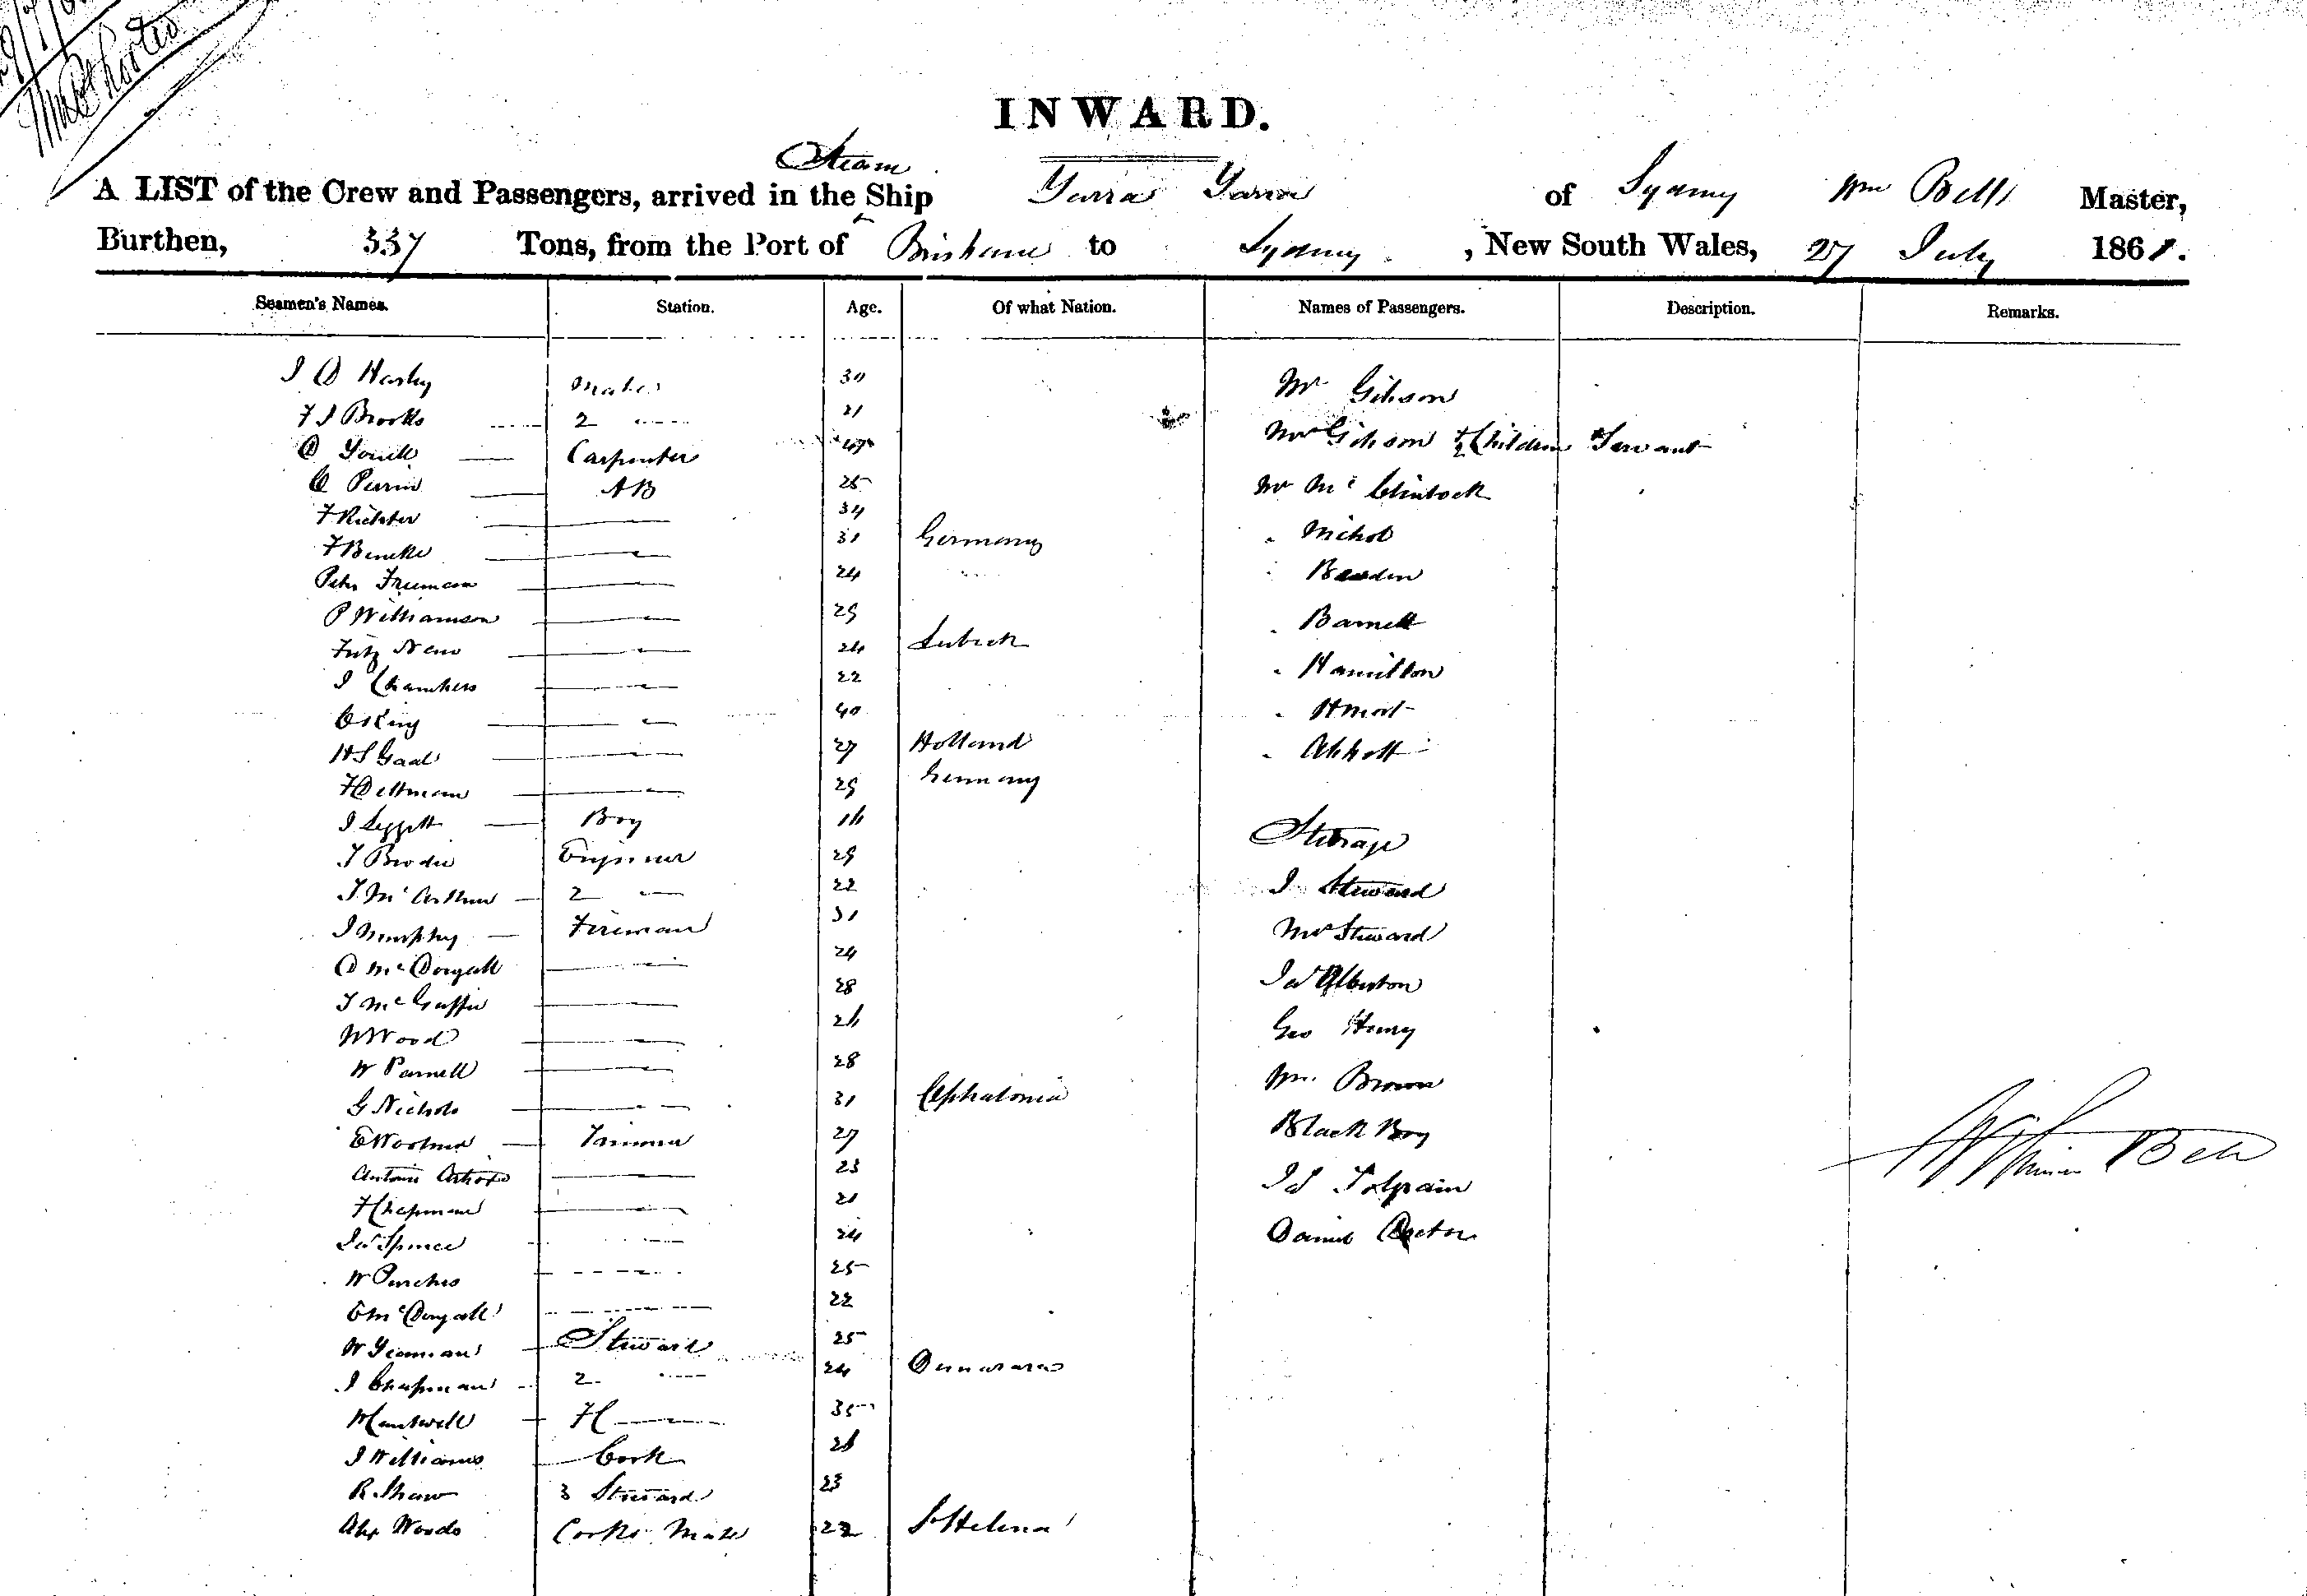 INWARD.
Steam
A LIST of the Crew and Passengers, arrived in the Ship Yarra Yarra of Sydney Wm Bell Master,
Burthen, 337 Tons, from the Port of Brisbane to Sydney , New South Wales, 27 July 1861.
Seamen's Names. Station. Age. Of what Nation. Names of Passengers. Description. Remarks.
Mate 30 Mr Gibson
F J Brooks 2 21
Mrs Gibson & 2 Children & Servant
D Youill Carpenter
C Perrin AB 25 Mr McClintock
F Richter 34
F Beneke 31 Germany " Nichol
Peter Freeman 24
P Williamson 29 " Barnett
Fritz 24 Lubeck
J Chambers 22 " Hamilton
C King 40 " Hmort
H S Gaal 27 Holland " Abbott
F Dettman 29 Germany
J Leggett Boy 16 Steerage
J Brodie Engineer 29
T McArthur 2 22 J Steward
J Murphy Fireman 31 Mrs Steward
D McDougall 24
T McGuffie 28 Jas Alberton
W Wood 26 Geo Henry
W Parnell 28 Wm Brown
G Nichols 31 Cephalonia
E Trimmer 27 Black Boy
Antonio 23
F Chapman 21
Jas Spence 24 Daniel
W Purches 25
C McDougall 22
W Yeoman Steward 25
J Chapman 2 24
W Cantwell F C 35
J Williams Cook 26
R Shaw 3 Steward 23
Alex Woods Cooks Mate 22 St Helena
William Bell